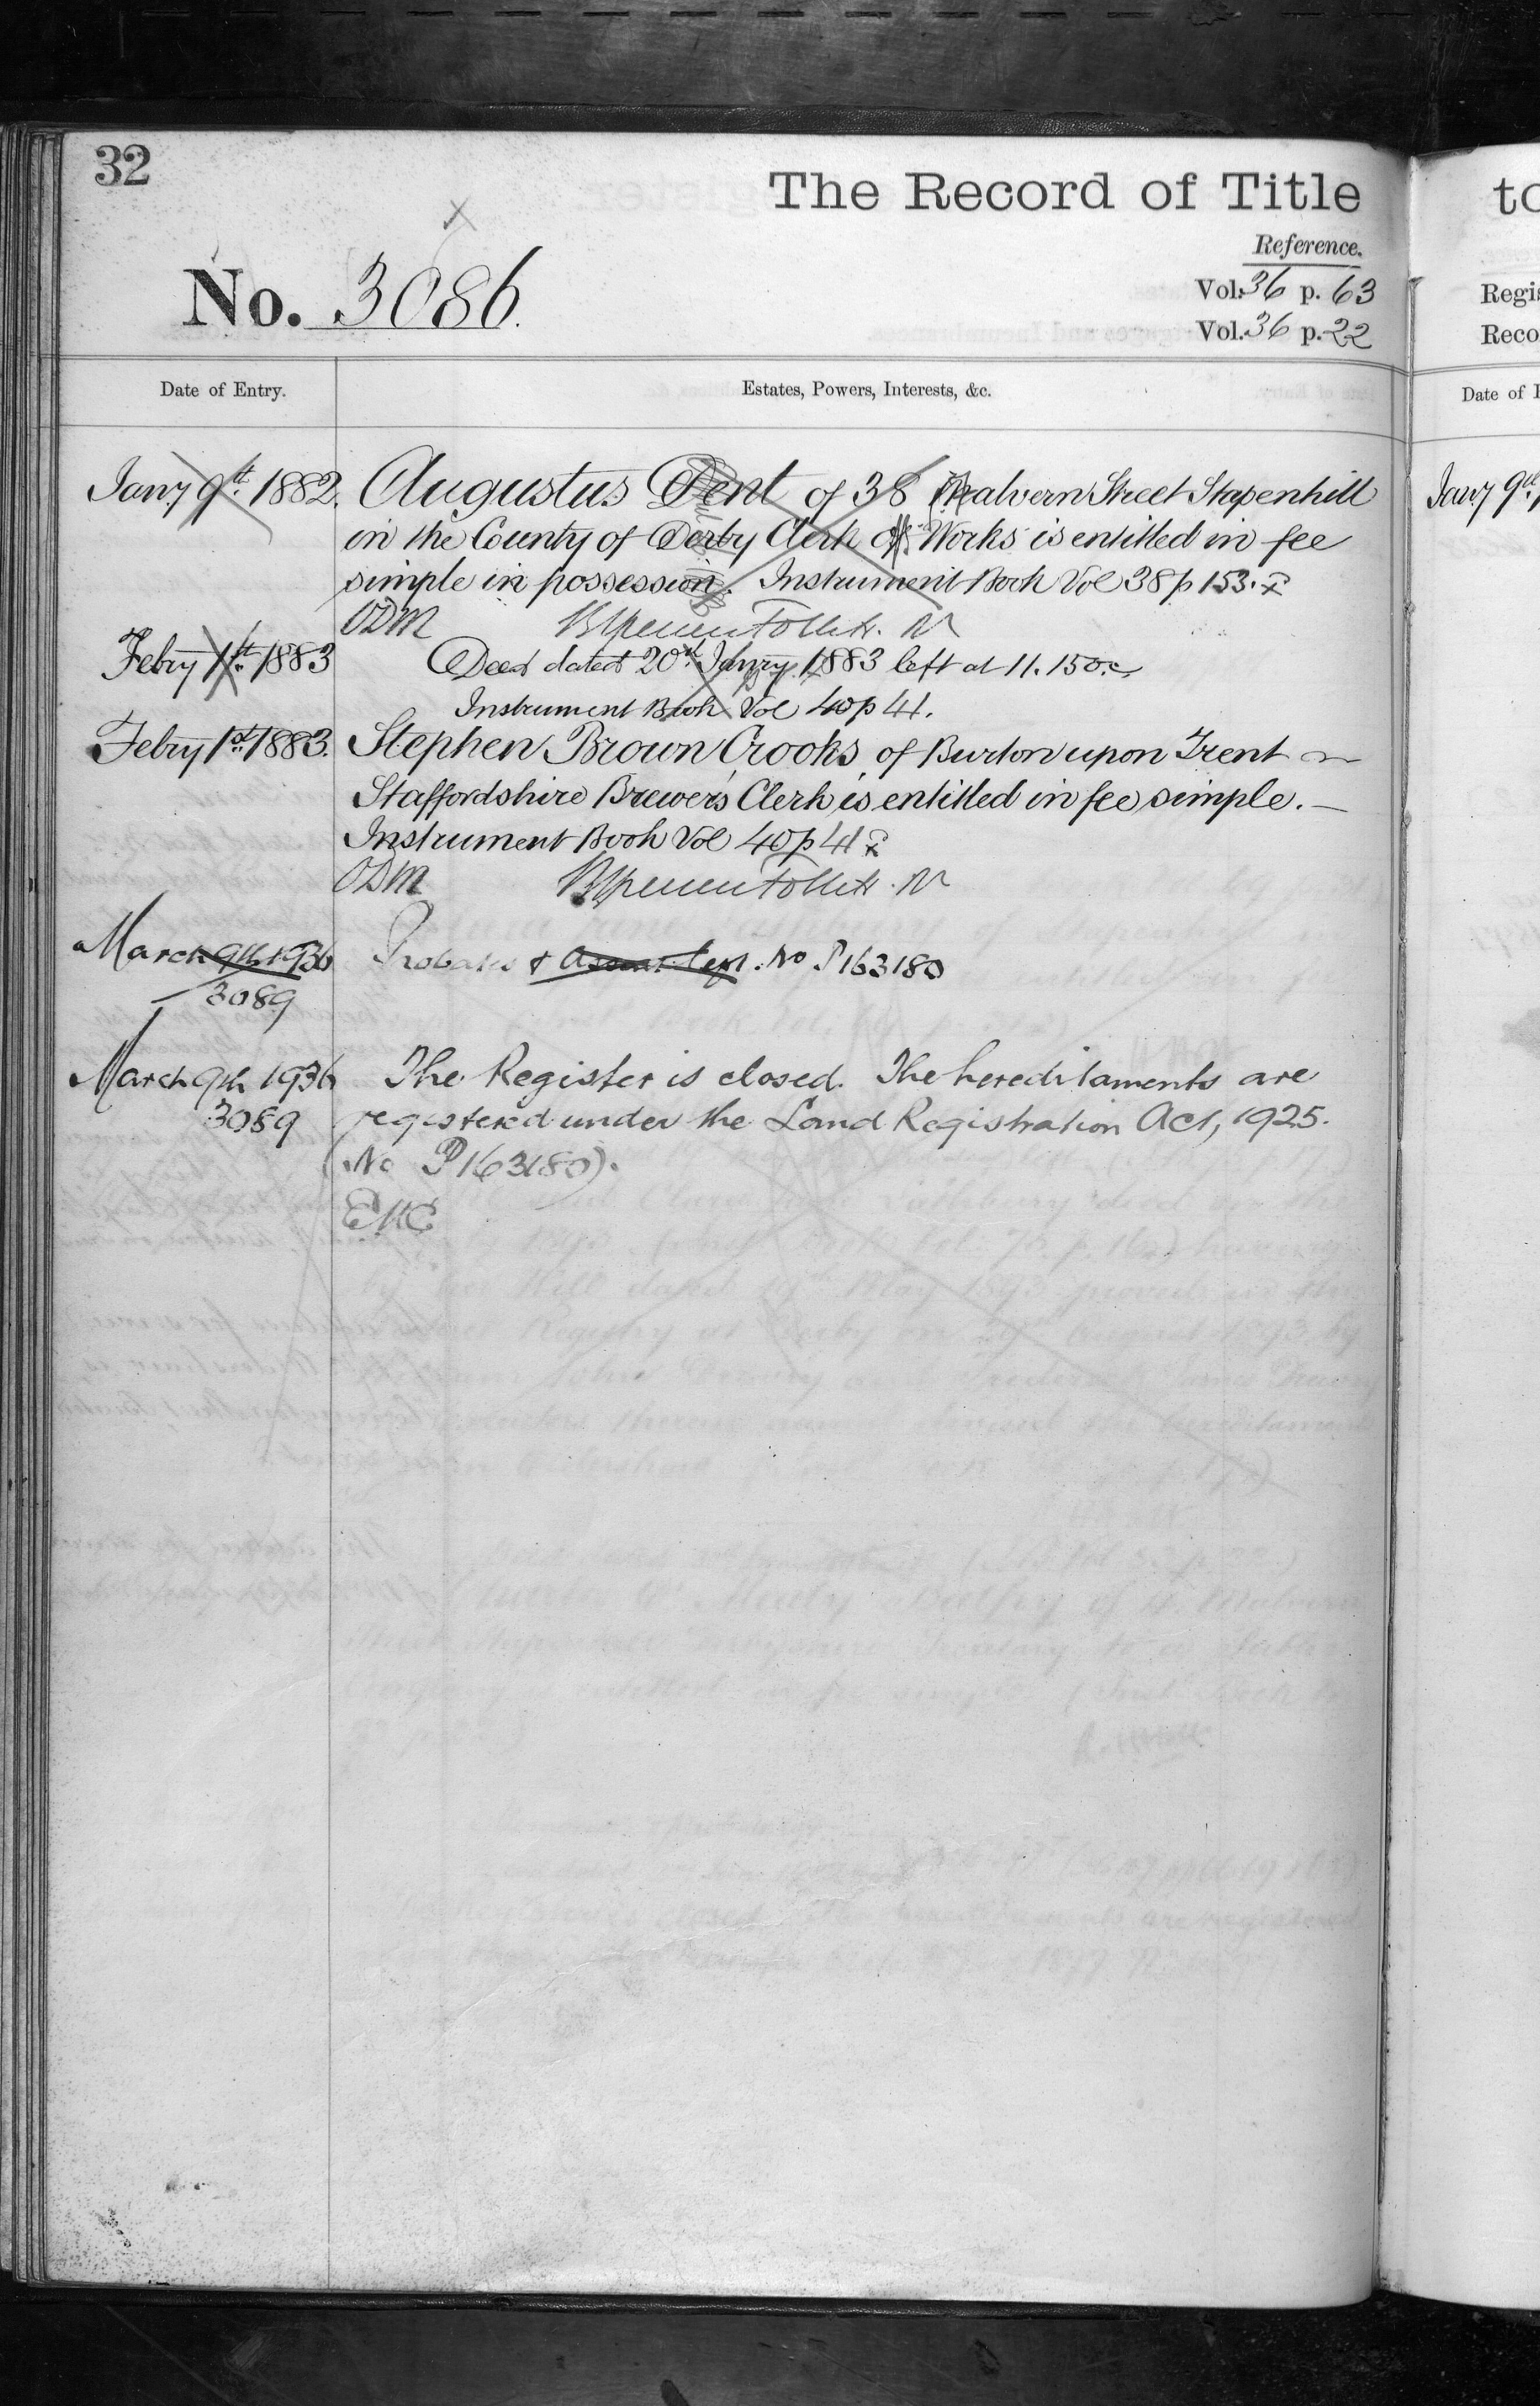 32
The Record of Title
Reference.
No. 3086.
Vol. 36 p. 63
Vol. 36 p. 22
Date of Entry.
Estates, Powers, Interests, &c.
Jany 9th 1882. Augustus Dent of 38 Malvern Street Stapenhill
in the County of Derby Clerk of Works is entitled in fee
simple in possession. Instrument Book Vol 38 p 153.
ODM
Febry 1st 1883 Deed dated 20th Janry 1883 left at 11.15 o.c.
Instrument Book Vol 40 p 41.
Febry 1st 1883. Stephen Brown Crooks of Burton upon Trent
Staffordshire Brewer's Clerk is entitled in fee simple.
Instrument Book Vol 40 p 41
ODM
March 9th 1936 Probates & Assent Regd. No P163180
3089
March 9th 1936 The Register is closed. The hereditaments are
3089 registered under the Land Registration Act, 1925.
(No P163180).
EHC
to
Regis
Reco
Date of E
Jany 9th